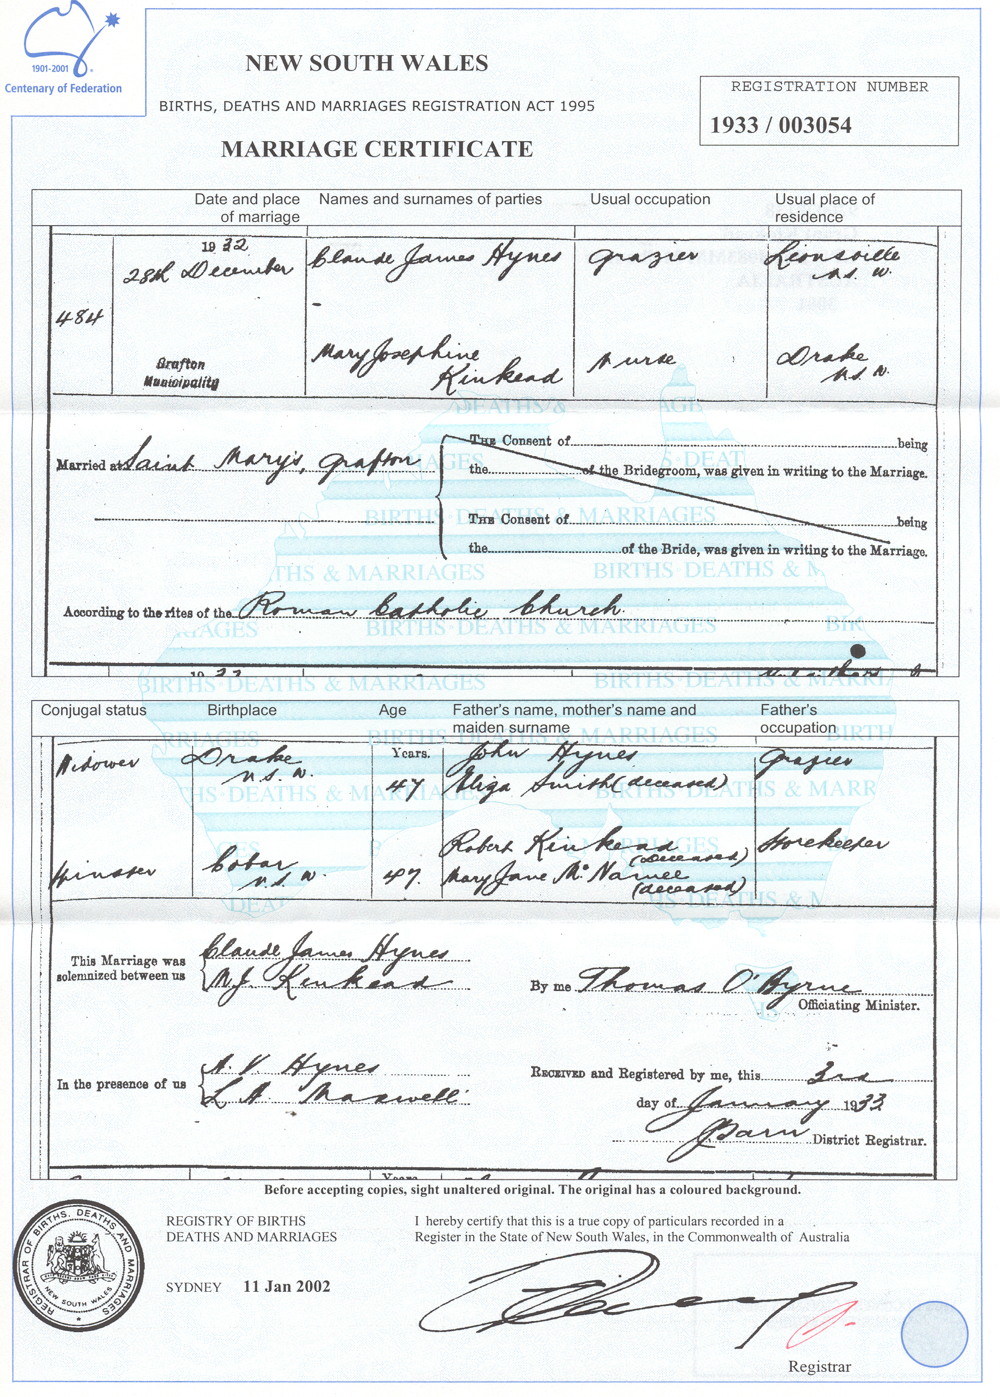 1901-2001
Centenary of Federation
NEW SOUTH WALES
BIRTHS, DEATHS AND MARRIAGES REGISTRATION ACT 1995
MARRIAGE CERTIFICATE
REGISTRATION NUMBER
1933 / 003054
Date and place of marriage
Names and surnames of parties
Usual occupation
Usual place of residence
484
1932
28th December
Grafton
Municipality
Claude James Hynes
Grazier
Lionsville
N.S.W.
Mary Josephine
Kinkead
Nurse
Drake
N.S.W.
Married at Saint Mary's, Grafton
The Consent of being
the of the Bridegroom, was given in writing to the Marriage.
The Consent of being
the of the Bride, was given in writing to the Marriage.
According to the rites of the Roman Catholic Church.
Conjugal status
Birthplace
Age
Father's name, mother's name and maiden surname
Father's occupation
Widower
Drake
N.S.W.
Years.
47
John Hynes
Eliza Smith (deceased)
Grazier
Spinster
Cobar
N.S.W.
47.
Robert Kinkead
(deceased)
Mary Jane McNamee
(deceased)
Storekeeper
This Marriage was
solemnized between us
Claude James Hynes
M.J. Kinkead
By me Thomas O'Byrne
Officiating Minister.
In the presence of us
A. V. Hynes
L. A. Maxwell
Received and Registered by me, this 3rd
day of January 1933
District Registrar.
Years
Before accepting copies, sight unaltered original. The original has a coloured background.
REGISTRAR OF BIRTHS, DEATHS AND MARRIAGES
NEW SOUTH WALES
REGISTRY OF BIRTHS
DEATHS AND MARRIAGES
SYDNEY 11 Jan 2002
I hereby certify that this is a true copy of particulars recorded in a
Register in the State of New South Wales, in the Commonwealth of Australia
Registrar
BIRTHS·DEATHS & MARRIAGES